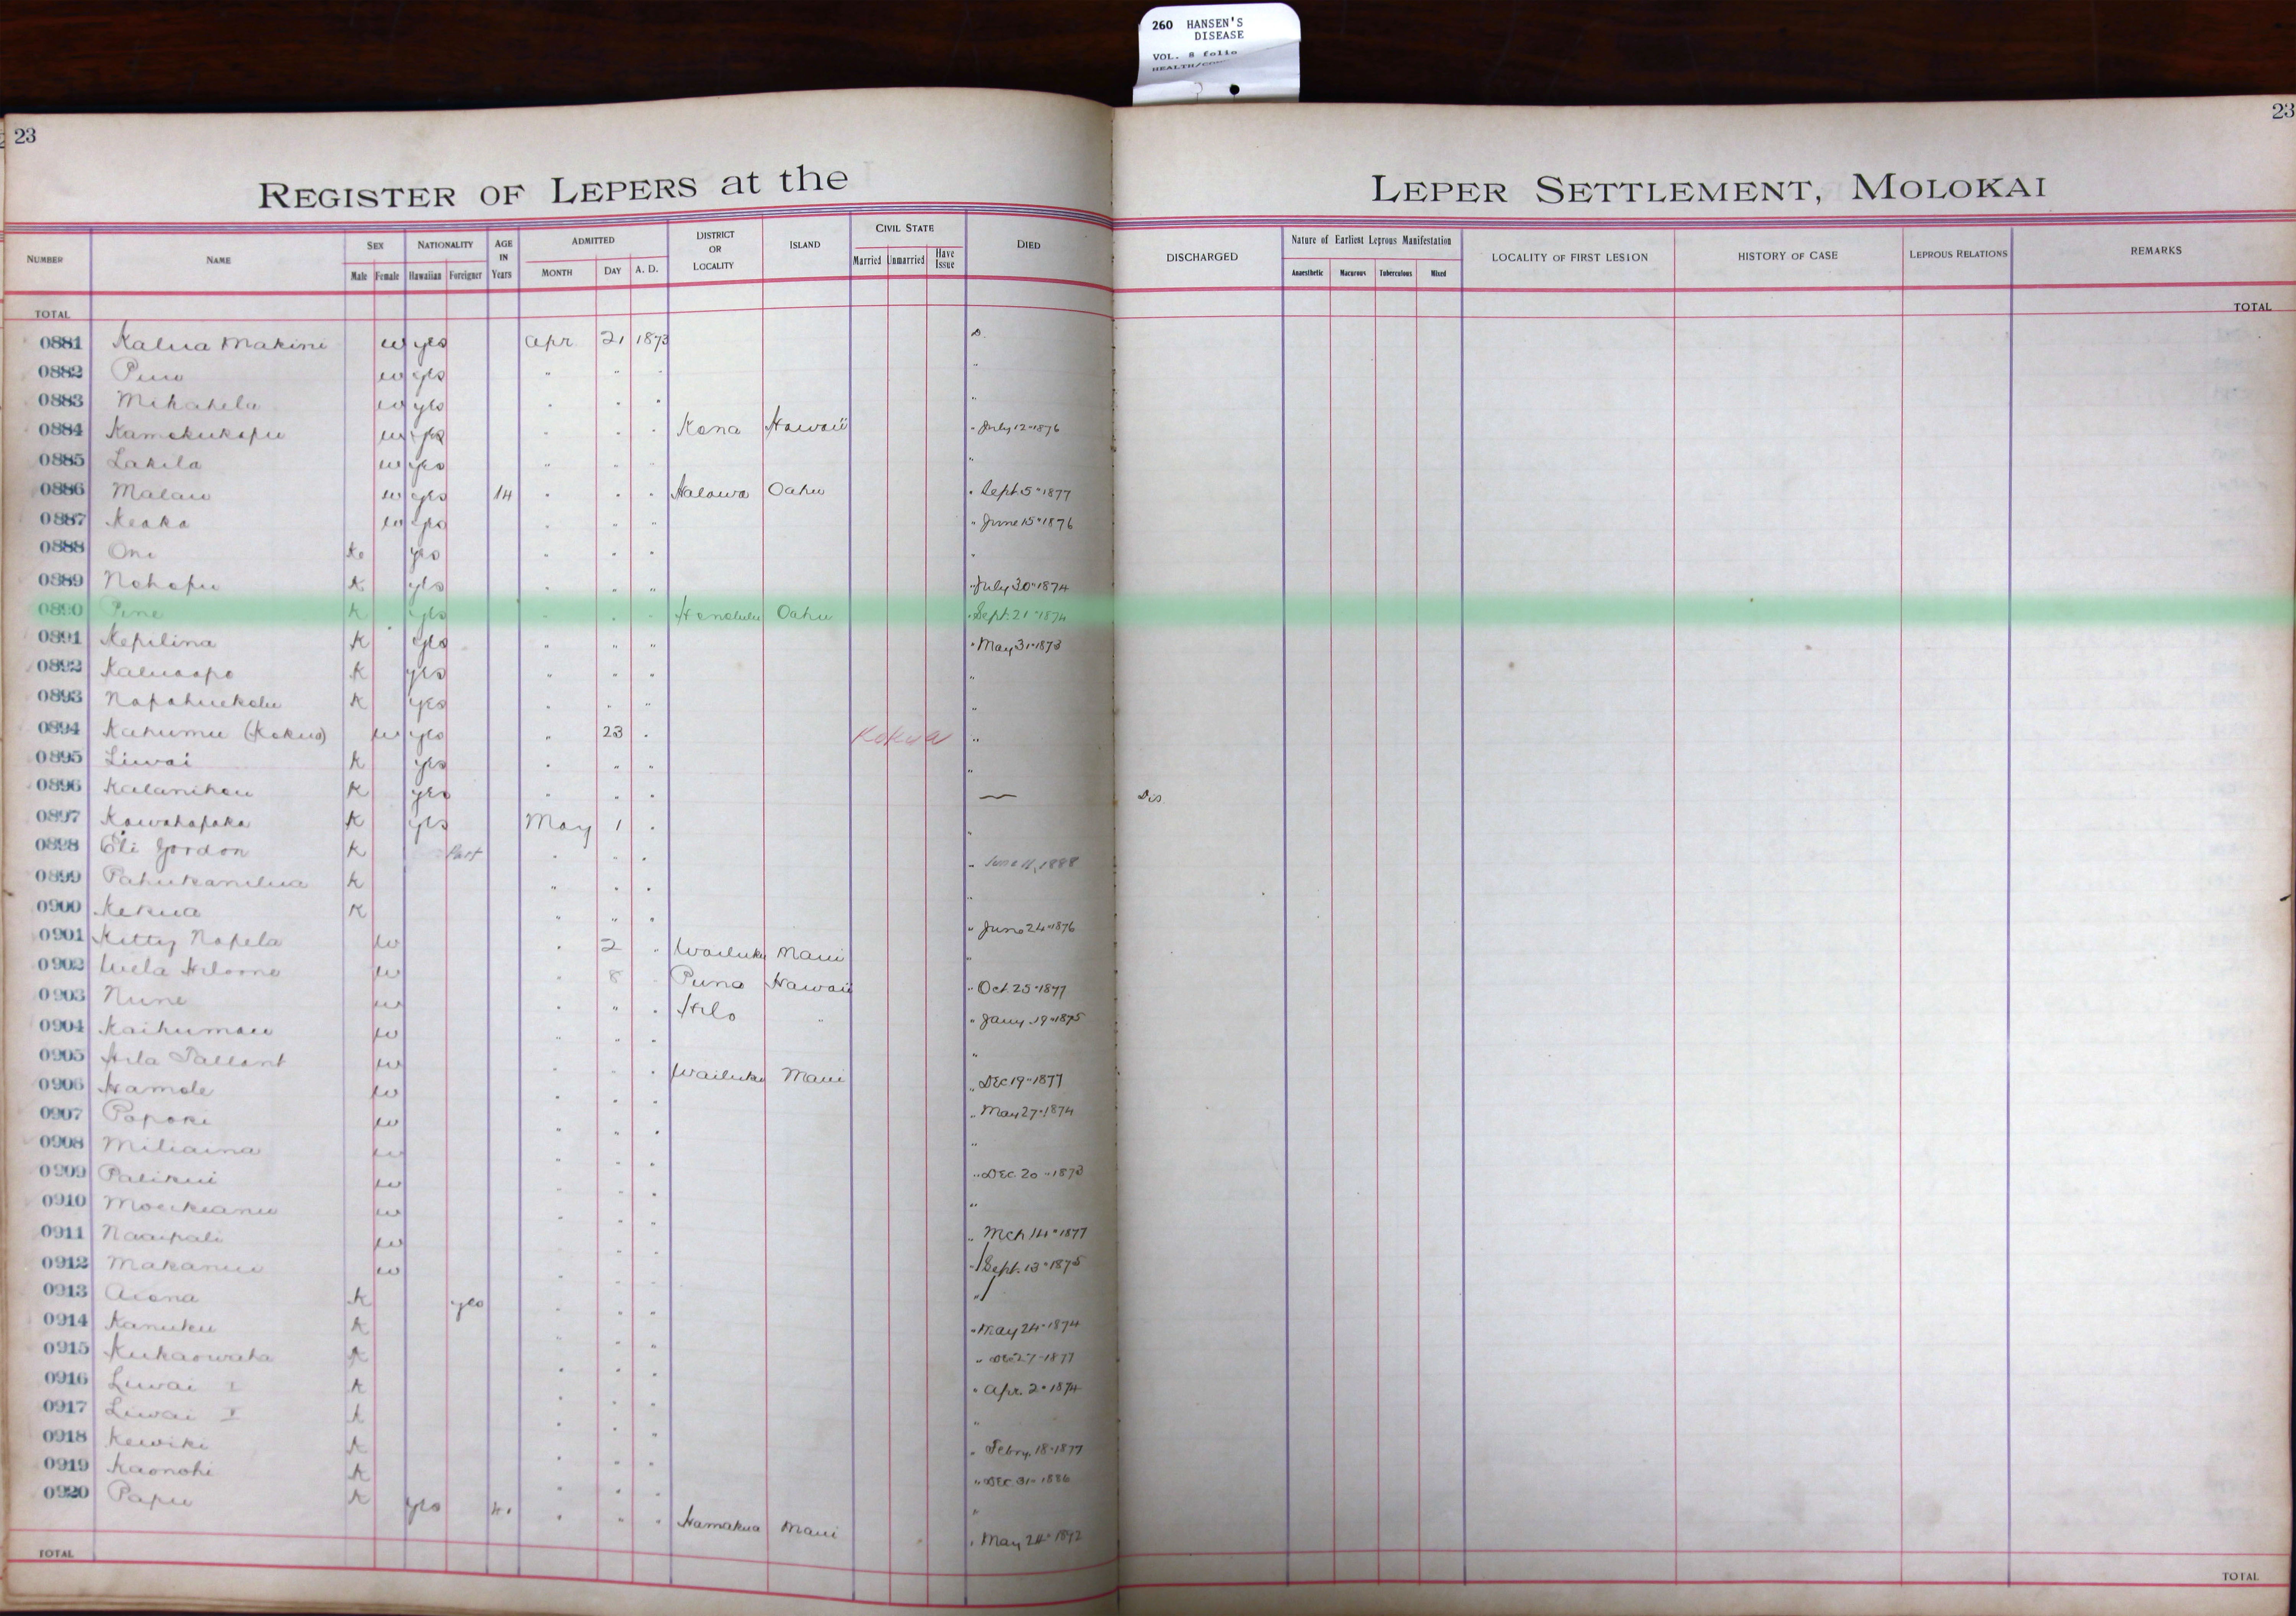 260 HANSEN'S
DISEASE
VOL. 8 folio
23
23
REGISTER OF LEPERS at the LEPER SETTLEMENT, MOLOKAI
NUMBER NAME SEX NATIONALITY AGE IN Years ADMITTED DISTRICT OR LOCALITY ISLAND CIVIL STATE DIED DISCHARGED Nature of Earliest Leprous Manifestation LOCALITY OF FIRST LESION HISTORY OF CASE LEPROUS RELATIONS REMARKS
Male Female Hawaiian Foreigner MONTH DAY A. D. Married Unmarried Have Issue Anaesthetic Macurous Tuberculous Mixed
TOTAL TOTAL
0881 Kalua Makini w yes Apr 21 1873 D.
0882 w yes " " " "
0883 Mikahela w yes " " " "
0884 Kamokukapu w yes " " " Kona Hawaii " July 12 " 1876
0885 Lakila w yes " " " "
0886 Malau w yes 14 " " " Halawa Oahu " Sept. 5 " 1877
0887 Keaka w yes " " " " June 15 " 1876
0888 Oni K yes " " " "
0889 Nohopu K yes " " " " July 30 " 1874
0890 Pine K yes " " " Honolulu Oahu " Sept. 21 " 1874
0891 Kepilina K yes " " " " May 31 " 1873
0892 K yes " " " "
0893 Napahuekolu K yes " " " "
0894 Kahumu (Kokua) w yes " 23 " Kokua "
0895 Liwai K yes " " " "
0896 Kalanihou K yes " " " — Dis
0897 Kawahapaka K yes May 1 " "
0898 Eli Gordon K Part " " " " June 11, 1888
0899 Pahukanilua K " " " "
0900 Kekua K " " " " June 24 " 1876
0901 Kitty Napela w " 2 " Wailuku Maui "
0902 w " 8 Puna Hawaii " Oct. 25 " 1877
0903 Nune w " " " Hilo " " Jany. 19 " 1875
0904 Kaihumau w " " " "
0905 Hila Tallant w " " " Wailuku Maui " Dec 19 " 1877
0906 Hamole w " " " " May 27 " 1874
0907 Papoki w " " " "
0908 Miliaina w " " " " Dec. 20 " 1873
0909 Palikui w " " " "
0910 Moeikeanu w " " " " Mch 14 " 1877
0911 Naaipali w " " " " Sept. 13 " 1875
0912 Makanui w " " " "
0913 Aiona K yes " " " " May 24 " 1874
0914 Kanuku K " " " Dec 27 " 1877
0915 Kukaowaha K " " " " Apr. 2 " 1874
0916 Liwai I K " " " "
0917 Liwai K " " " " Febry. 18 " 1877
0918 Kewiki K " " " " Dec. 31 " 1886
0919 Kaonohi K " " " "
0920 Papu K yes " " " Hamakua Maui " May 24 " 1892
TOTAL TOTAL